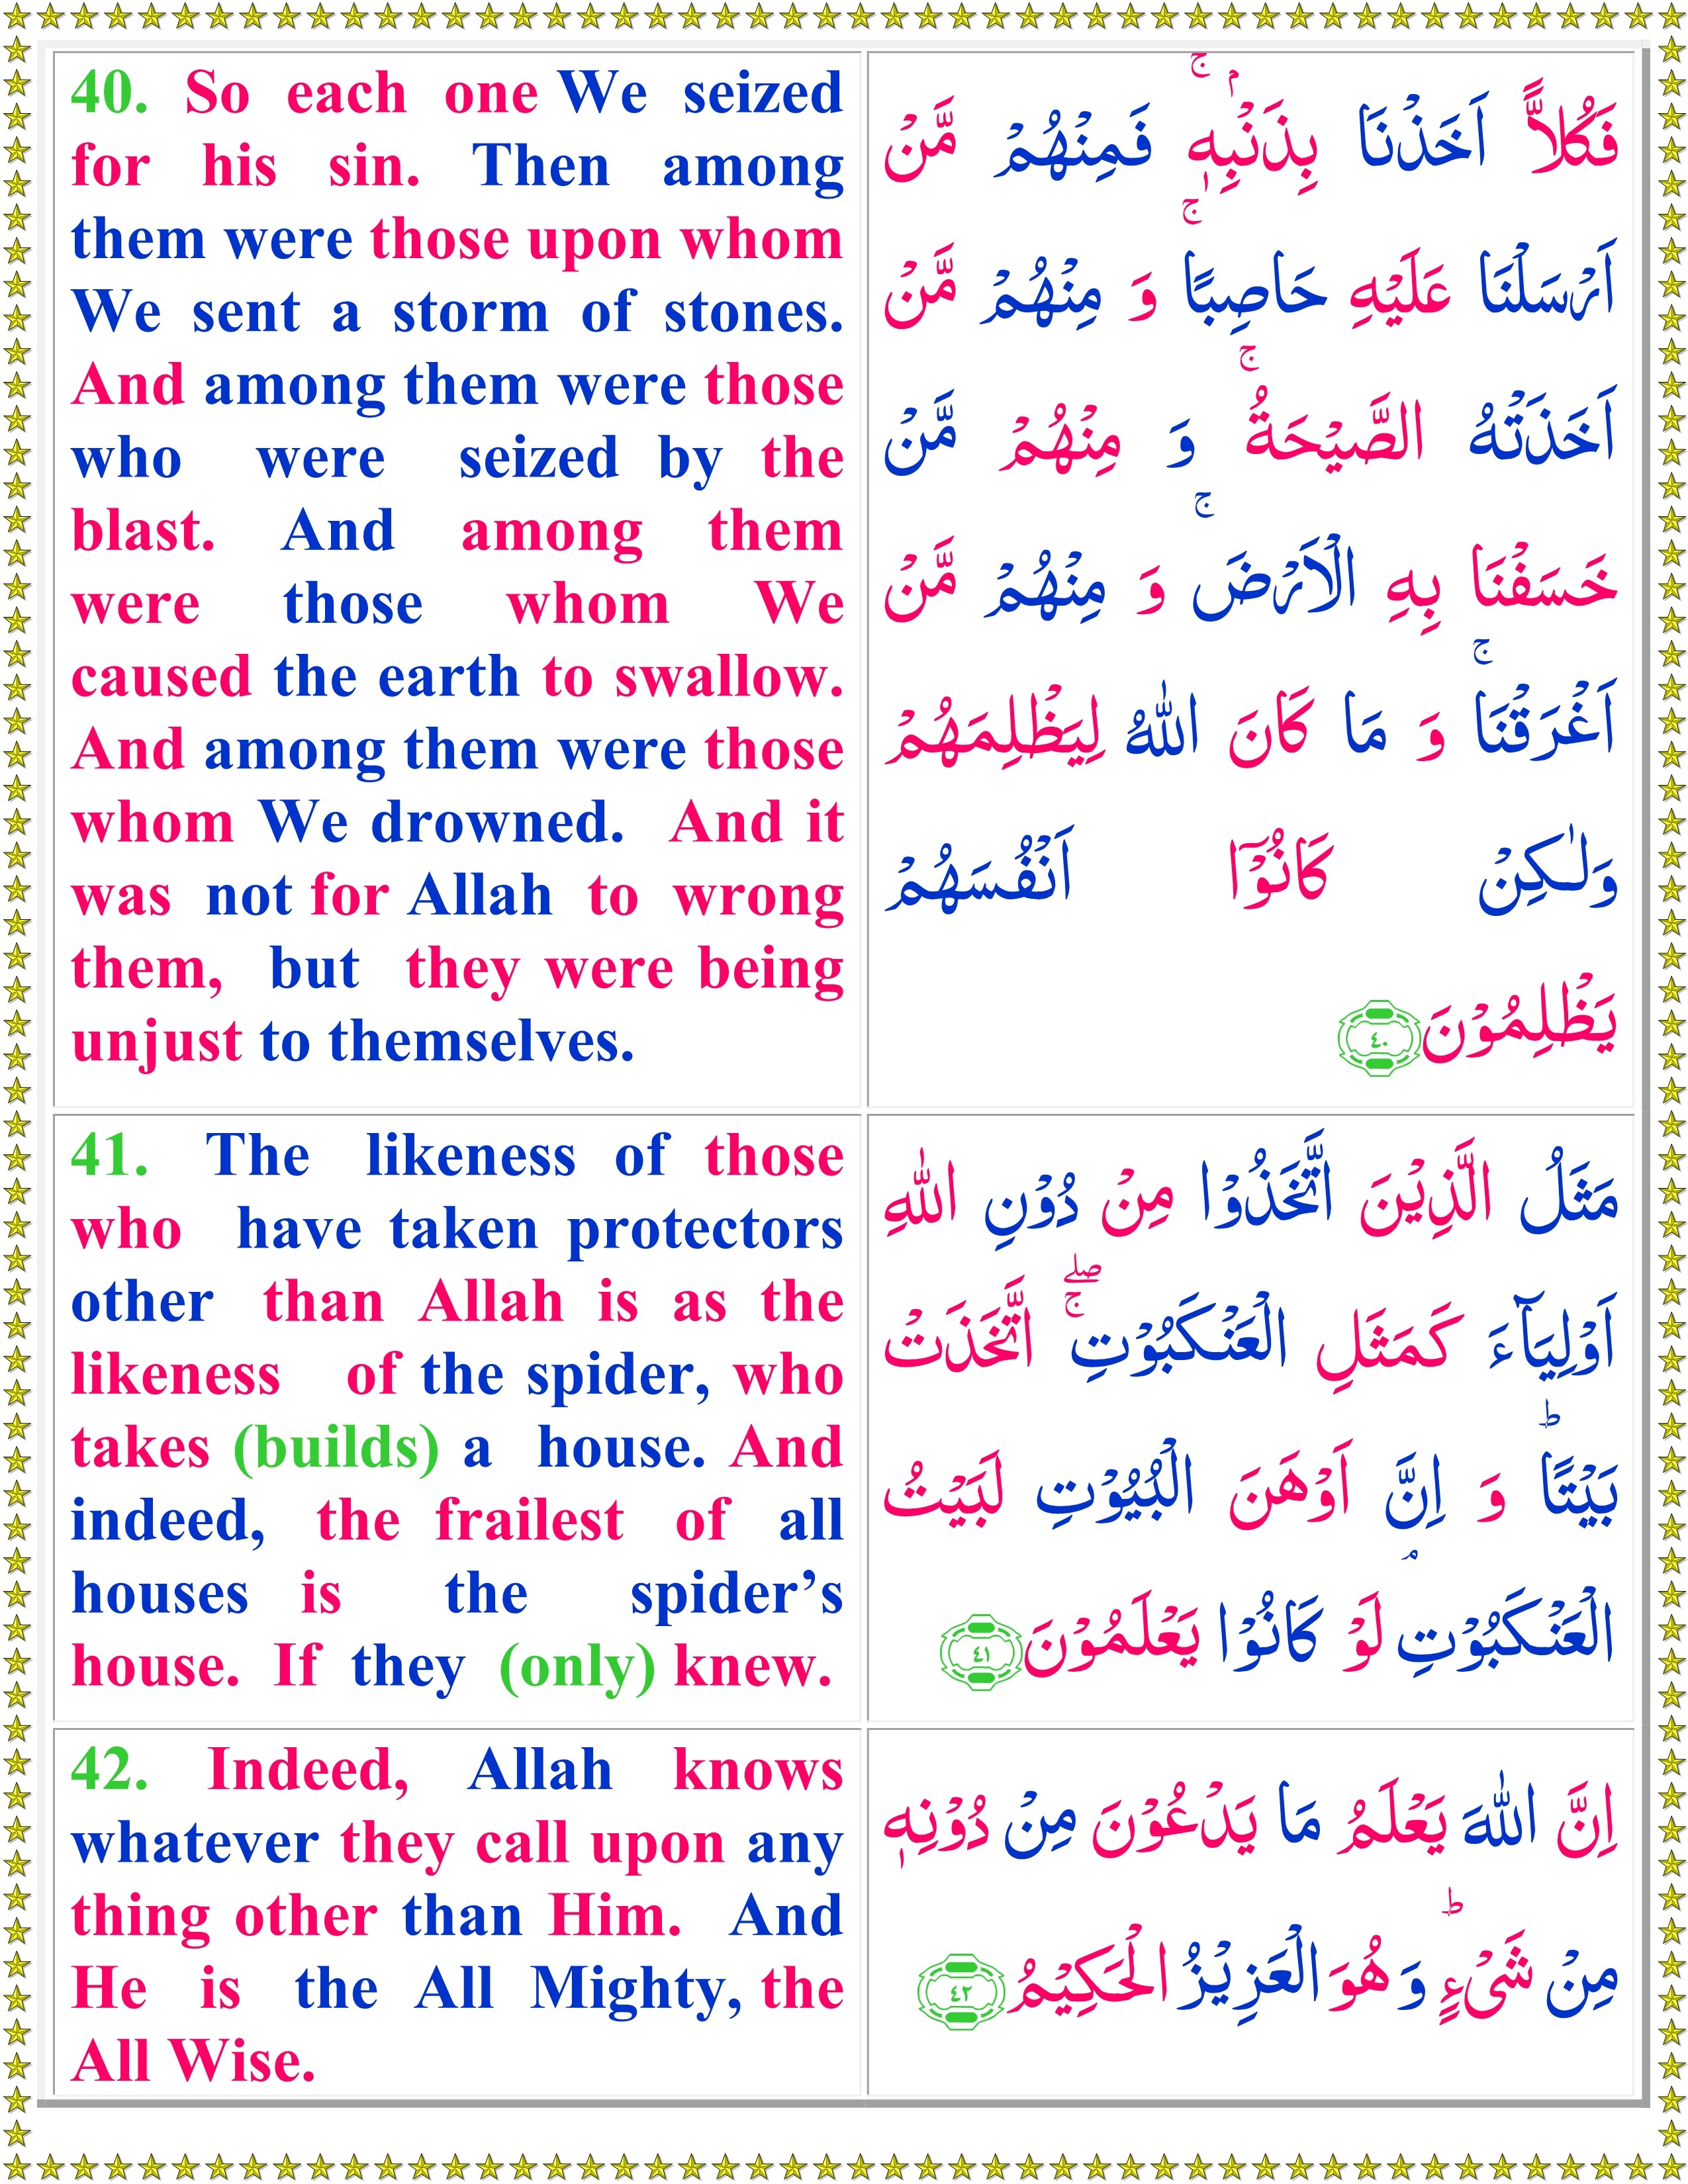 40. So each one We seized
for his sin. Then among
them were those upon whom
We sent a storm of stones.
And among them were those
who were seized by the
blast. And among them
were those whom We
caused the earth to swallow.
And among them were those
whom We drowned. And it
was not for Allah to wrong
them, but they were being
unjust to themselves.
فَكُلاًّ اَخَذْنَا بِذَنْۢبِهٖ‌ ۚ فَمِنْهُمْ مَّنْ
اَرْسَلْنَا عَلَيْهِ حَاصِبًا‌ ۚ وَ مِنْهُمْ مَّنْ
اَخَذَتْهُ الصَّيْحَةُ‌ ۚ وَ مِنْهُمْ مَّنْ
خَسَفْنَا بِهِ الْاَرْضَ‌ ۚ وَ مِنْهُمْ مَّنْ
اَغْرَقْنَا‌ ۚ وَ مَا كَانَ اللّٰهُ لِيَظْلِمَهُمْ
وَلٰـكِنْ كَانُوْۤا اَنْفُسَهُمْ
يَظْلِمُوْنَ ٤٠
41. The likeness of those
who have taken protectors
other than Allah is as the
likeness of the spider, who
takes (builds) a house. And
indeed, the frailest of all
houses is the spider’s
house. If they (only) knew.
مَثَلُ الَّذِيْنَ اتَّخَذُوْا مِنْ دُوْنِ اللّٰهِ
اَوْلِيَآءَ كَمَثَلِ الْعَنْكَبُوْتِ ‌ۖۚ اتَّخَذَتْ
بَيْتًا‌ ؕ وَ اِنَّ اَوْهَنَ الْبُيُوْتِ لَبَيْتُ
الْعَنْكَبُوْتِ‌ۘ لَوْ كَانُوْا يَعْلَمُوْنَ ٤١
42. Indeed, Allah knows
whatever they call upon any
thing other than Him. And
He is the All Mighty, the
All Wise.
اِنَّ اللّٰهَ يَعْلَمُ مَا يَدْعُوْنَ مِنْ دُوْنِهٖ
مِنْ شَىْءٍ‌ ؕ وَ هُوَ الْعَزِيْزُ الْحَكِيْمُ ٤٢